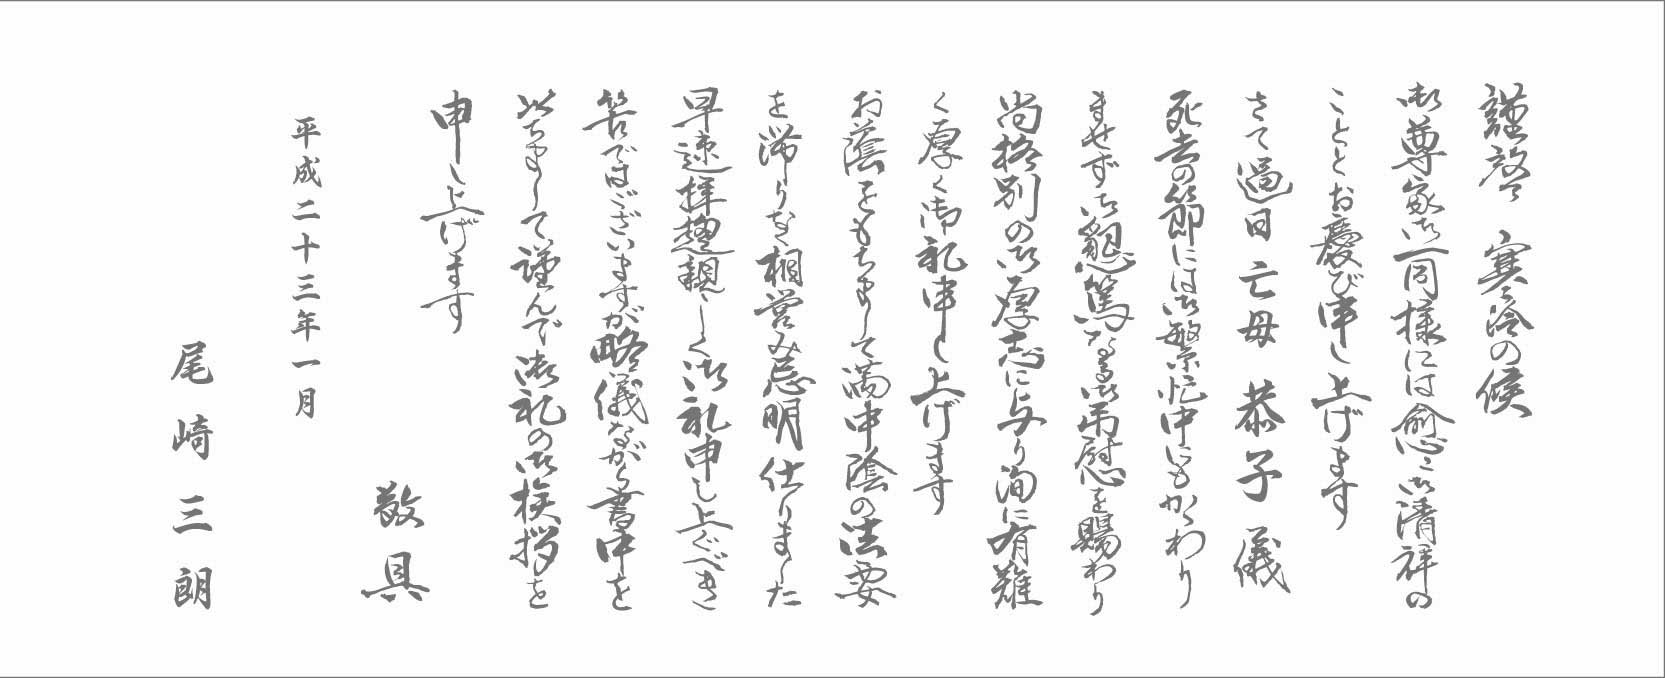 謹啓 寒冷の候
御尊家御一同様には愈々御清祥の
こととお慶び申し上げます
さて過日亡母 恭子儀
死去の節には御繁忙中にもかゝわり
ませず御懇篤なる御弔慰を賜わり
尚格別の御厚志に与り洵に有難
く厚く御礼申し上げます
お蔭をもちまして満中陰の法要
を滞りなく相営み忌明仕りました
早速拝趨親しく御礼申し上ぐべき
筈ではございますが略儀ながら書中を
以ちまして謹んで御礼の御挨拶を
申し上げます
敬具
平成二十三年一月
尾崎三朗